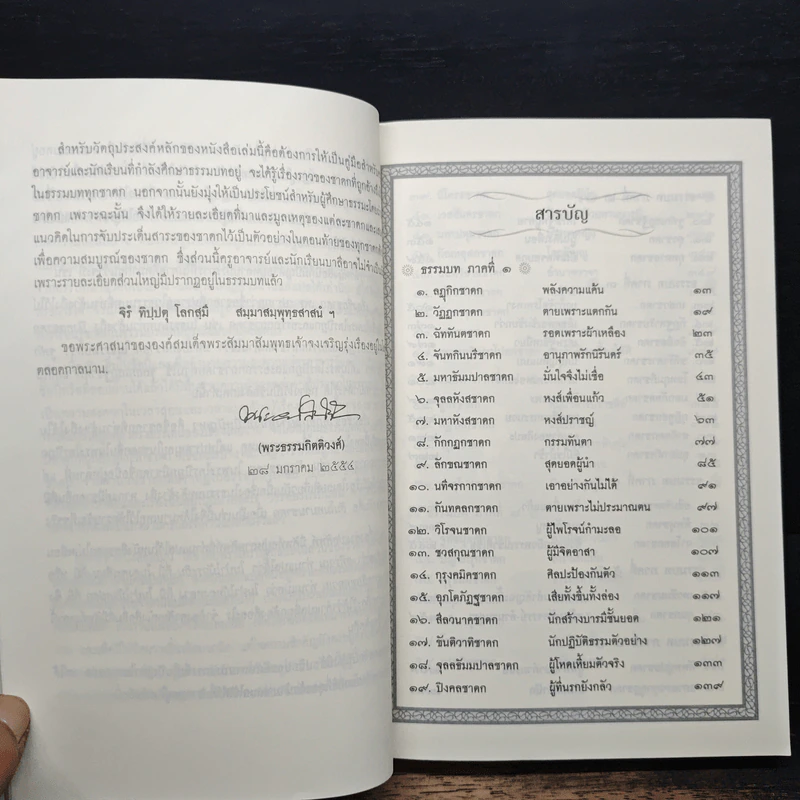 สำหรับวัตถุประสงค์หลักของหนังสือเล่มนี้คือต้องการให้เป็นคู่มือสำหรับ
อาจารย์และนักเรียนที่กำลังศึกษาธรรมบทอยู่ จะได้รู้เรื่องราวของชาดกที่ถูกอ้างถึง
ในธรรมบททุกชาดก นอกจากนั้นยังมุ่งให้เป็นประโยชน์สำหรับผู้ศึกษาธรรมะโดย
ชาดก เพราะฉะนั้น จึงได้ให้รายละเอียดที่มาและมูลเหตุของแต่ละชาดกและ
แนวคิดในการจับประเด็นสาระของชาดกไว้เป็นตัวอย่างในตอนท้ายของทุกชาดก
เพื่อความสมบูรณ์ของชาดก ซึ่งส่วนนี้ครูอาจารย์และนักเรียนบาลีอาจไม่จำเป็น
เพราะรายละเอียดส่วนใหญ่มีปรากฏอยู่ในธรรมบทแล้ว
จิรํ ทิปฺปตุ โลกสฺมึ สมฺมาสมฺพุทฺธสาสนํ ฯ
ขอพระศาสนาขององค์สมเด็จพระสัมมาสัมพุทธเจ้าจงเจริญรุ่งเรืองอยู่ใน
ตลอดกาลนาน.
(พระธรรมกิตติวงศ์)
๒๘ มกราคม ๒๕๕๔
สารบัญ
ธรรมบท ภาคที่ ๑
๑. ลฏุกิกชาดก พลังความแค้น ๑๓
๒. วัฏฏกชาดก ตายเพราะแตกกัน ๑๙
๓. ฉัททันตชาดก รอดเพราะผ้าเหลือง ๒๓
๔. จันทกินนรีชาดก อานุภาพรักนิรันดร์ ๓๕
๕. มหาธัมมปาลชาดก มั่นใจจึงไม่เชื่อ ๔๓
๖. จุลลหังสชาดก หงส์เพื่อนแก้ว ๕๑
๗. มหาหังสชาดก หงส์ปราชญ์ ๖๓
๘. กักกฏกชาดก กรรมทันตา ๗๗
๙. ลักขณชาดก สุดยอดผู้นำ ๘๕
๑๐. นทีจรกากชาดก เอาอย่างกันไม่ได้ ๙๑
๑๑. กันทคลกชาดก ตายเพราะไม่ประมาณตน ๙๗
๑๒. วิโรจนชาดก ผู้ไพโรจน์กำมะลอ ๑๐๑
๑๓. ชวสกุณชาดก ผู้มีจิตอาสา ๑๐๗
๑๔. กุรุงคมิคชาดก ศิลปะป้องกันตัว ๑๑๓
๑๕. อุภโตภัฏฐชาดก เสียทั้งขึ้นทั้งล่อง ๑๑๗
๑๖. สีลวนาคชาดก นักสร้างบารมีชั้นยอด ๑๒๑
๑๗. ขันติวาทิชาดก นักปฏิบัติธรรมตัวอย่าง ๑๒๗
๑๘. จุลลธัมมปาลชาดก ผู้โหดเหี้ยมตัวจริง ๑๓๓
๑๙. ปิงคลชาดก ผู้ที่นรกยังกลัว ๑๓๙